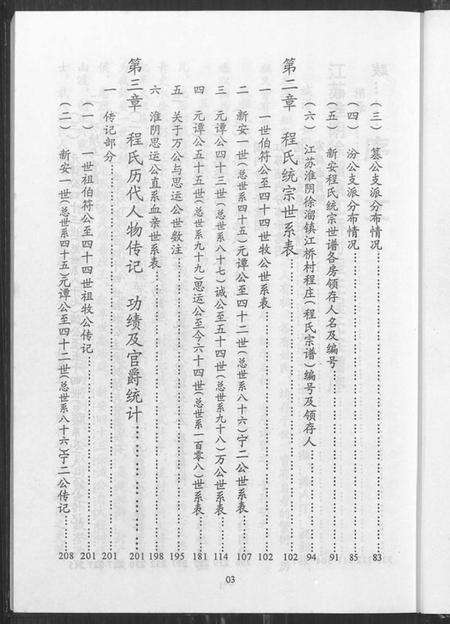 (三) 綦公支派分布情况……83
(四) 汾公支派分布情况……85
(五) 新安程氏统宗世谱各房领存人名及编号……91
(六) 江苏淮阴徐溜镇江桥村程庄(程氏宗谱)编号及领存人……94
第二章 程氏统宗世系表……102
一 一世伯符公至四十四世牧公世系表……102
二 新安一世(总世系四十五)元谭公至四十二世(总世系八十六)宁二公世系表……107
三 元谭公四十三世(总世系八十七)诚公至五十四世(总世系九十八)万公世系表……114
四 元谭公五十五世(总世系九十九)思运公至今六十四世(总世系一百零八)世系表……181
五 关于万公与思运公世数注……195
六 淮阴思运公直系血亲世系表……198
第三章 程氏历代人物传记 功绩及官爵统计……201
一 传记部分……201
(一) 一世祖伯符公至四十四世祖牧公传记……201
(二) 新安一世(总世系四十五)元谭公至四十二世(总世系八十六)宁二公传记……208
03